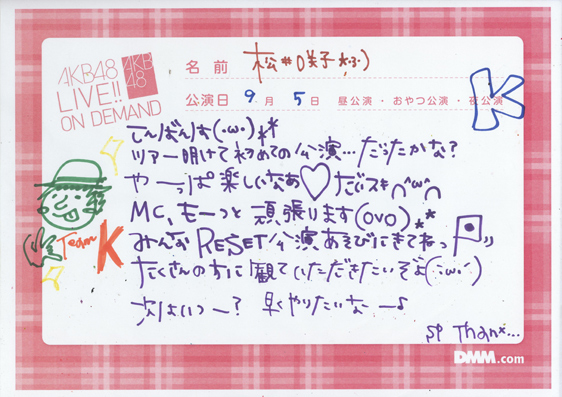 AKB48
LIVE!!
ON DEMAND
AKB
48
名前 松井咲子
公演日 9月5日 昼公演・おやつ公演・夜公演
K
こんばんは(・ω・)
ツアー明けて初めての公演…だったかな?
やーっぱ楽しいなあ♡だいスキ
MC、もーっと頑張ります(OVO)
みんなRESET公演あそびにきてねっ
たくさんの方に観ていただきたいぞよ(・ω・)
次はいつー?早くやりたいなー♪
Team K
SP Thanx...
DMM.com